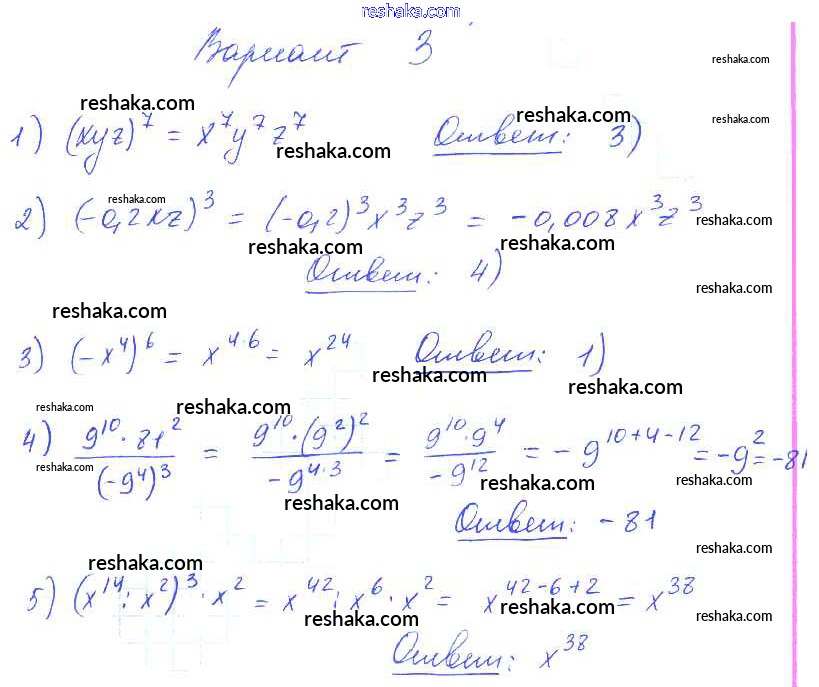 reshaka.com
Вариант 3
reshaka.com
reshaka.com reshaka.com
1) (xyz)^7 = x^7 y^7 z^7 Ответ: 3)
reshaka.com
reshaka.com
reshaka.com
2) (-0,2xz)^3 = (-0,2)^3 x^3 z^3 = -0,008 x^3 z^3
reshaka.com
reshaka.com reshaka.com
Ответ: 4)
reshaka.com
reshaka.com
3) (-x^4)^6 = x^{4·6} = x^{24} Ответ: 1)
reshaka.com
reshaka.com
reshaka.com reshaka.com
4) \frac{9^{10}·81^2}{(-9^4)^3} = \frac{9^{10}·(9^2)^2}{-9^{4·3}} = \frac{9^{10}·9^4}{-9^{12}} = -9^{10+4-12} = -9^2 = -81
reshaka.com reshaka.com reshaka.com
reshaka.com
Ответ: -81
reshaka.com
reshaka.com
5) (x^{14} : x^2)^3 · x^2 = x^{42} : x^6 · x^2 = x^{42-6+2} = x^{38}
reshaka.com reshaka.com reshaka.com
Ответ: x^{38}